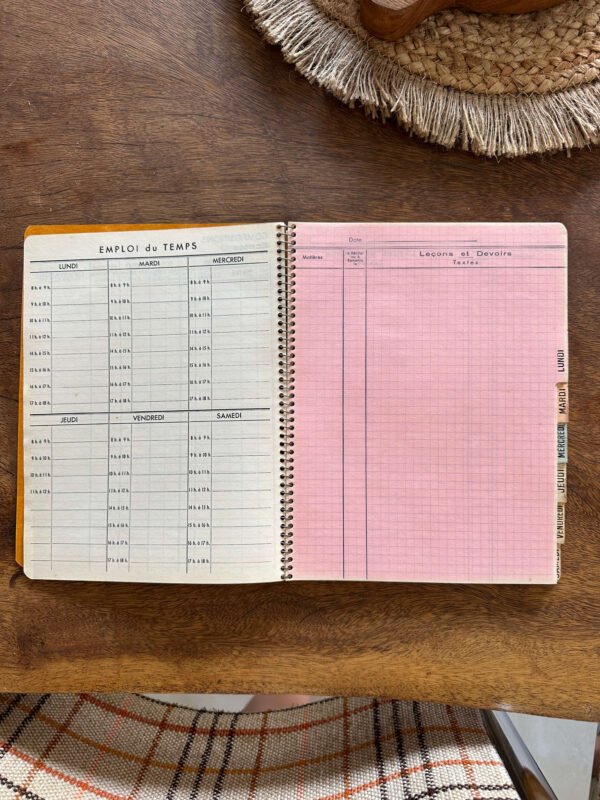 EMPLOI du TEMPS
LUNDI MARDI MERCREDI
8 h. à 9 h. 8 h. à 9 h. 8 h. à 9 h.
9 h. à 10 h. 9 h. à 10 h. 9 h. à 10 h.
10 h. à 11 h. 10 h. à 11 h. 10 h. à 11 h.
11 h. à 12 h. 11 h. à 12 h. 11 h. à 12 h.
14 h. à 15 h. 14 h. à 15 h. 14 h. à 15 h.
15 h. à 16 h. 15 h. à 16 h. 15 h. à 16 h.
16 h. à 17 h. 16 h. à 17 h. 16 h. à 17 h.
17 h. à 18 h. 17 h. à 18 h. 17 h. à 18 h.
JEUDI VENDREDI SAMEDI
8 h. à 9 h. 8 h. à 9 h. 8 h. à 9 h.
9 h. à 10 h. 9 h. à 10 h. 9 h. à 10 h.
10 h. à 11 h. 10 h. à 11 h. 10 h. à 11 h.
11 h. à 12 h. 11 h. à 12 h. 11 h. à 12 h.
14 h. à 15 h. 14 h. à 15 h.
15 h. à 16 h. 15 h. à 16 h.
16 h. à 17 h. 16 h. à 17 h.
17 h. à 18 h. 17 h. à 18 h.
Date
Matières
Leçons et Devoirs
Textes
LUNDI
MARDI
MERCREDI
JEUDI
VENDREDI